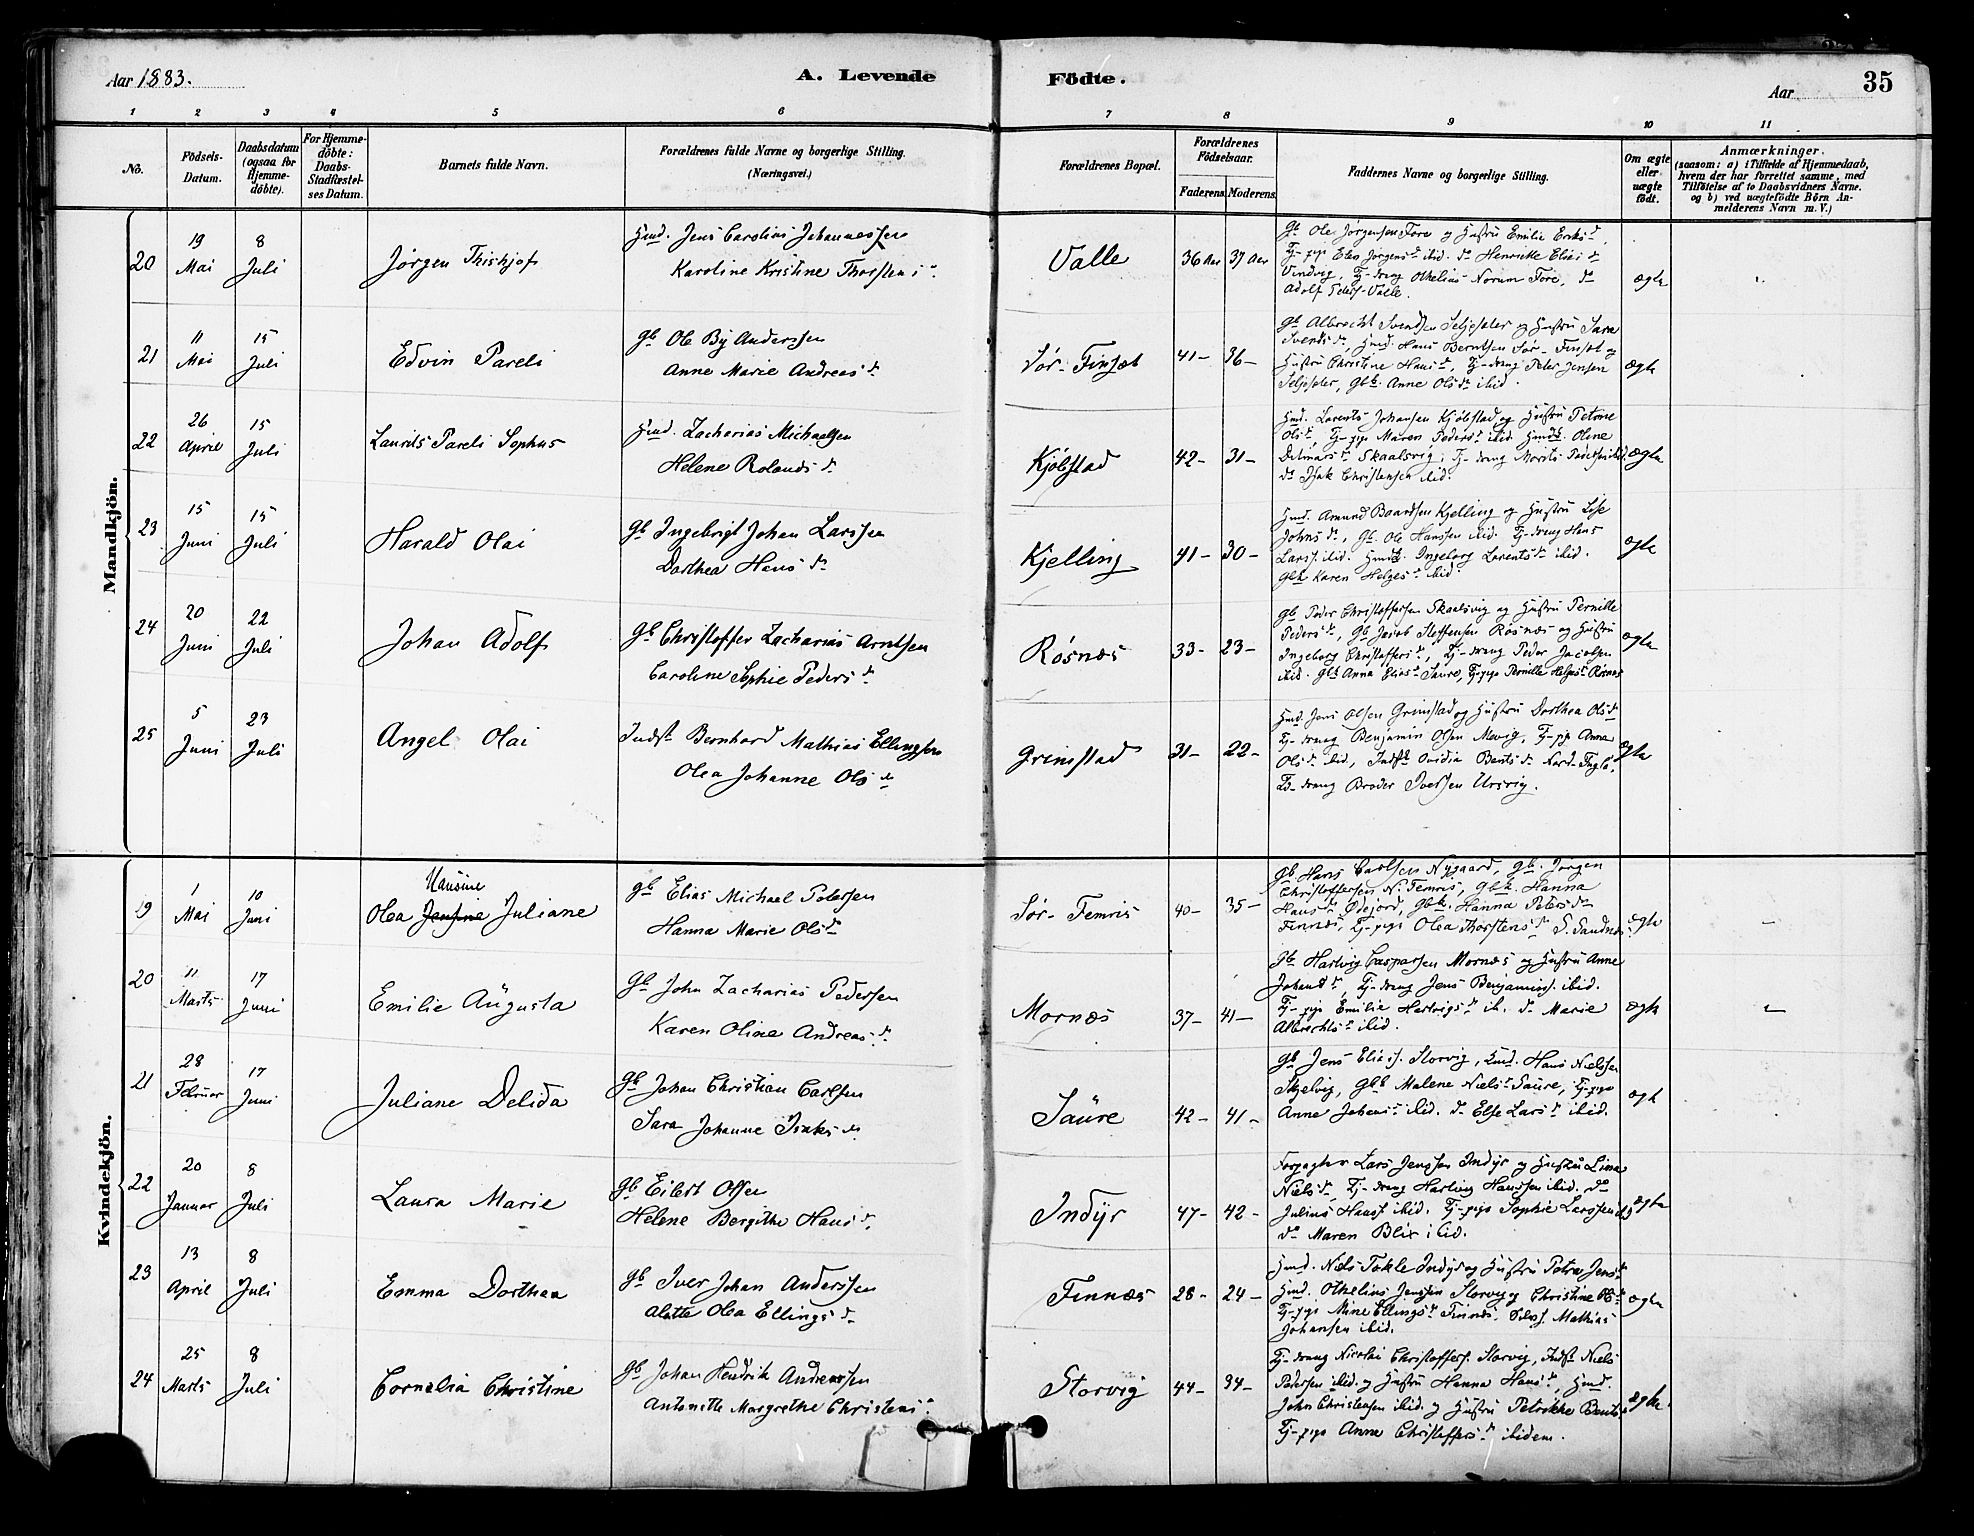 Aar 1883. A. Levende Födte. Aar 35
1 2 3 4 5 6 7 8 9 10 11
No.
Födsels-Datum.
Daabsdatum (ogsaa for Hjemme-döbte).
For Hjemme-döbte: Daabs-Stadfæstel-ses Datum.
Barnets fulde Navn.
Forældrenes fulde Navne og borgerlige Stilling. (Næringsvei.)
Forældrenes Bopæl.
Forældrenes Födselsaar.
Faderens. Moderens.
Faddernes Navne og borgerlige Stilling.
Om ægte eller uægte födt.
Anmærkninger.
(saasom: a) i Tilfælde af Hjemmedaab,
hvem der har forrettet samme, med
Tilföielse af to Daabsvidners Navne.
og b) ved uægtefödte Börn An-
melderens Navn m. V.)
Mandkjön.
20 19 Mai 8 Juli Jørgen Thiskjof
Hmd. Jens Carolius Johannessen
Karoline Kristine Thorstens d.
Valle 36 Aar 37 Aar
Gb Ole Jørgensen Fore og Hustru Emilie Eriksd.
Tj-pige Elen Jørgensd. ibid. do Henrikke Elias d.
Vindvig, Tj-dreng Othelius Norum Fore, do
Adolf Peders. Valle.
ægte
21 11 Mai 15 Juli Edvin Pareli
Gb Ole By Anderssen
Anne Marie Andreas d.
Sør-Finset 41- 36-
Gb Albrecht Svendsen Seljeseter og Hustru Sara
Svends d., Hmd. Hans Berntsen Sør-Finset og
Hustru Christine Hans d., Tj-dreng Peter Jensen
Seljeseter, Gbk. Anne Ols d. ibid.
ægte
22 26 April 15 Juli Laurits Pareli Sophus
Hmd. Zacharias Michaelsen
Helene Rolands d.
Kjølstad 42- 31-
Hmd. Lorents Johansen Kjølstad og Hustru Petrine
Ols d., Tj-pige Maren Peders d. ibid. Hmdk. Oline
Ditmars d. Skaalsvig, Tj-dreng Morits Pedersen ibid.
do Isak Christensen ibid.
ægte
23 15 Juni 15 Juli Harald Olai
Gb Ingebrigt Johan Larssen
Dorthea Hans d.
Kjelling 41- 30-
Hmd. Amund Baardsen Kjelling og Hustru Lise
Johns d., Gb. Ole Hanssen ibid. Tj-dreng Hans
Larss. ibid. Hmdk. Ingeborg Lorents d. ibid.
Gbk Karen Helges d. ibid.
ægte
24 20 Juni 22 Juli Johan Adolf
Gb Christoffer Zacharias Arntsen
Caroline Sophie Peders d.
Røsnæs 33- 23-
Gb Peder Christoffersen Skaalsvig og Hustru Pernille
Peders d., Gb Jacob Steffensen Røsnæs og Hustru
Ingeborg Christoffers d., Tj-dreng Peder Jacobsen
ibid. Gbk Anna Elias d. Saure, Tj-pige Pernille Helges d. Røsnæs
ægte
25 5 Juni 23 Juli Angel Olai
Indst Bernhard Mathias Ellingsen
Olea Johanne Ols d.
Grimstad 31- 22-
Hmd Jens Olsen Grimstad og Hustru Dorthea Ols d.
Tj-dreng Benjamin Olsen Mevig, Tj-pige Anna
Ols d. ibid, Indstk Ovidia Bents d. Nord-Fuglø,
Tj-dreng Broder Iversen Ursvig.
ægte
Kvindekjön.
19 1 Mai 10 Juni Olea Jensine Hansine Juliane
Gb Elias Michael Petersen
Hanna Marie Ols d.
Sør-Femris 40- 35-
Gb Hans Carlsen Nygaard, Gb. Jørgen
Christoffersen N. Femris, Gbk. Hanna
Hans d. Ødejord, Gbk. Hanna Peters d.
Finnæs, Tj-pige Olea Thorstens d. S. Sandnæs.
ægte –
20 11 Marts 17 Juni Emilie Augusta
Gb John Zacharias Pedersen
Karen Oline Andreas d.
Mornæs 37- 41-
Gb Hartvig Caspersen Mornæs og Hustru Anne
Johans d., Tj-dreng Jens Benjamins. ibid.
Tj-pige Emilie Hartvigs d. ib. do Marie
Albrechts d. ibid.
ægte –
21 28 Februar 17 Juni Juliane Delida
Gb Johan Christian Carlsen
Sara Johanne Isaks d.
Saure 42- 41-
Gb Jens Elias s. Storvig, Hmd. Hans Nielssen
Skjelvig, Gbk Malene Niels d. Saure, Tj-pige
Anne Johans d. ibid. do Else Lars d. ibid.
ægte
22 20 Januar 8 Juli Laura Marie
Gb Eilert Olsen
Helene Bergithe Hans d.
Indyr 47- 42-
Forpagter Lars Jenssen Indyr og Hustru Lina
Niels d., Tj-dreng Hartvig Hanssen ibid. do
Julius Hanss. ibid. Tj-pige Sophie Larssen ibid
do Maren Blix ibid.
ægte
23 13 April 8 Juli Emma Dorthea
Gb Iver Johan Anderssen
Alette Olea Ellings d.
Finnæs 28- 24-
Hmd. Niels Tokle Indyr og Hustru Petra Jens d.
Hmd. Othelius Jenssen Storvig og Christine Ols d.
Tj-pige Mine Ellings d. Finnæs. Mathias
Johansen ibid.
ægte
24 25 Marts 8 Juli Cornelia Christine
Gb Johan Hendrik Andreassen
Antonette Margrethe Christens d.
Storvig 44- 34-
Tj-dreng Nicolai Christoffers. Storvig, Indst Niels
Pedersen ibid. og Hustru Hanna Hans d., Hmd.
John Christensen ibid. og Hustru Petrikke Bents d.
Tj-pige Anne Christoffers d. ibidem.
ægte